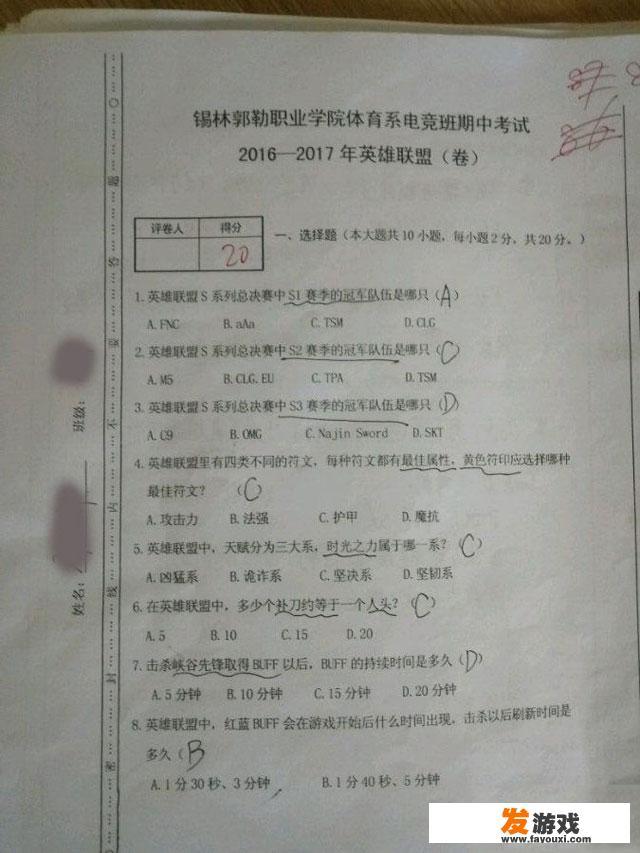 锡林郭勒职业学院体育系电竞班期中考试
2016—2017 年英雄联盟（卷）
评卷人 得分
20
一、选择题（本大题共 10 小题，每小题 2 分，共 20 分。）
1. 英雄联盟 S 系列总决赛中 S1 赛季的冠军队伍是哪只（A）
A. FNC B. aAa C. TSM D. CLG
2. 英雄联盟 S 系列总决赛中 S2 赛季的冠军队伍是哪只（C）
A. M5 B. CLG. EU C. TPA D. TSM
3. 英雄联盟 S 系列总决赛中 S3 赛季的冠军队伍是哪只（D）
A. C9 B. OMG C. Najin Sword D. SKT
4. 英雄联盟里有四类不同的符文，每种符文都有最佳属性，黄色符印应选择哪种
最佳符文？ （C）
A. 攻击力 B. 法强 C. 护甲 D. 魔抗
5. 英雄联盟中，天赋分为三大系，时光之力属于哪一系？（C）
A. 凶猛系 B. 诡诈系 C. 坚决系 D. 坚韧系
6. 在英雄联盟中，多少个补刀约等于一个人头？（C）
A. 5 B. 10 C. 15 D. 20
7. 击杀峡谷先锋取得 BUFF 以后，BUFF 的持续时间是多久（D）
A. 5 分钟 B. 10 分钟 C. 15 分钟 D. 20 分钟
8. 英雄联盟中，红蓝 BUFF 会在游戏开始后什么时间出现，击杀以后刷新时间是
多久（B）
A. 1 分 30 秒、3 分钟 B. 1 分 40 秒、5 分钟
班级：
姓名：
密 封 线 内 不 要 答 题
发游戏
www.fayouxi.com